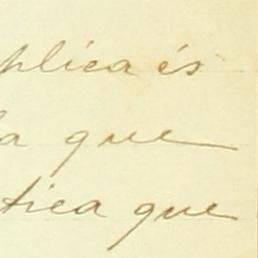 plica és
a que
tica que